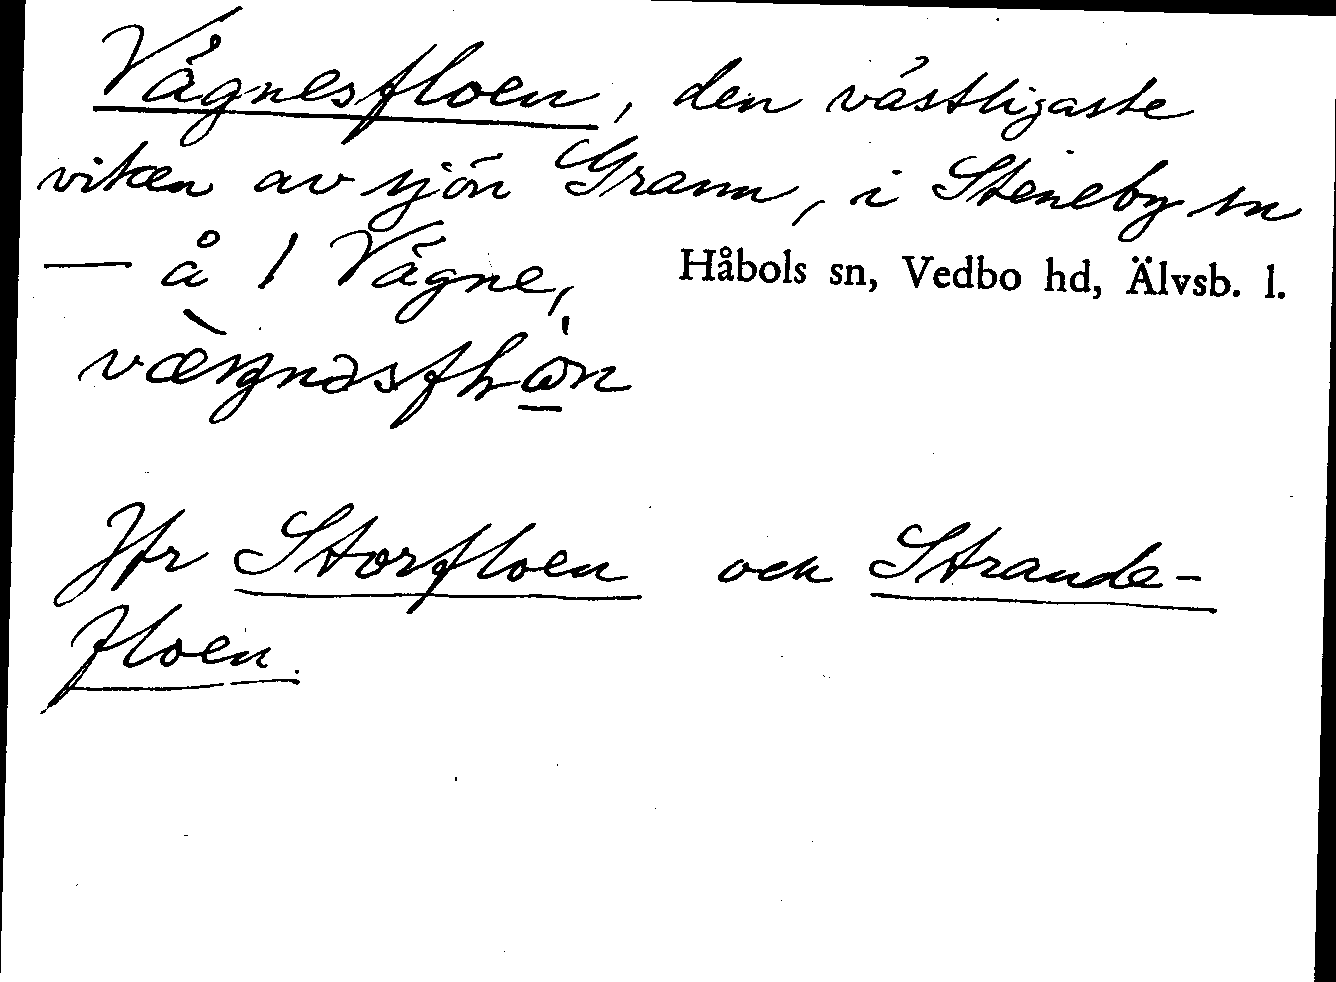 Vägnesfloen, den västligaste
viken av sjön Grann, i Steneby sn
— å 1 Vägne,
Håbols sn, Vedbo hd, Älvsb. l.
Jfr Storfloen och Strande-
floen.